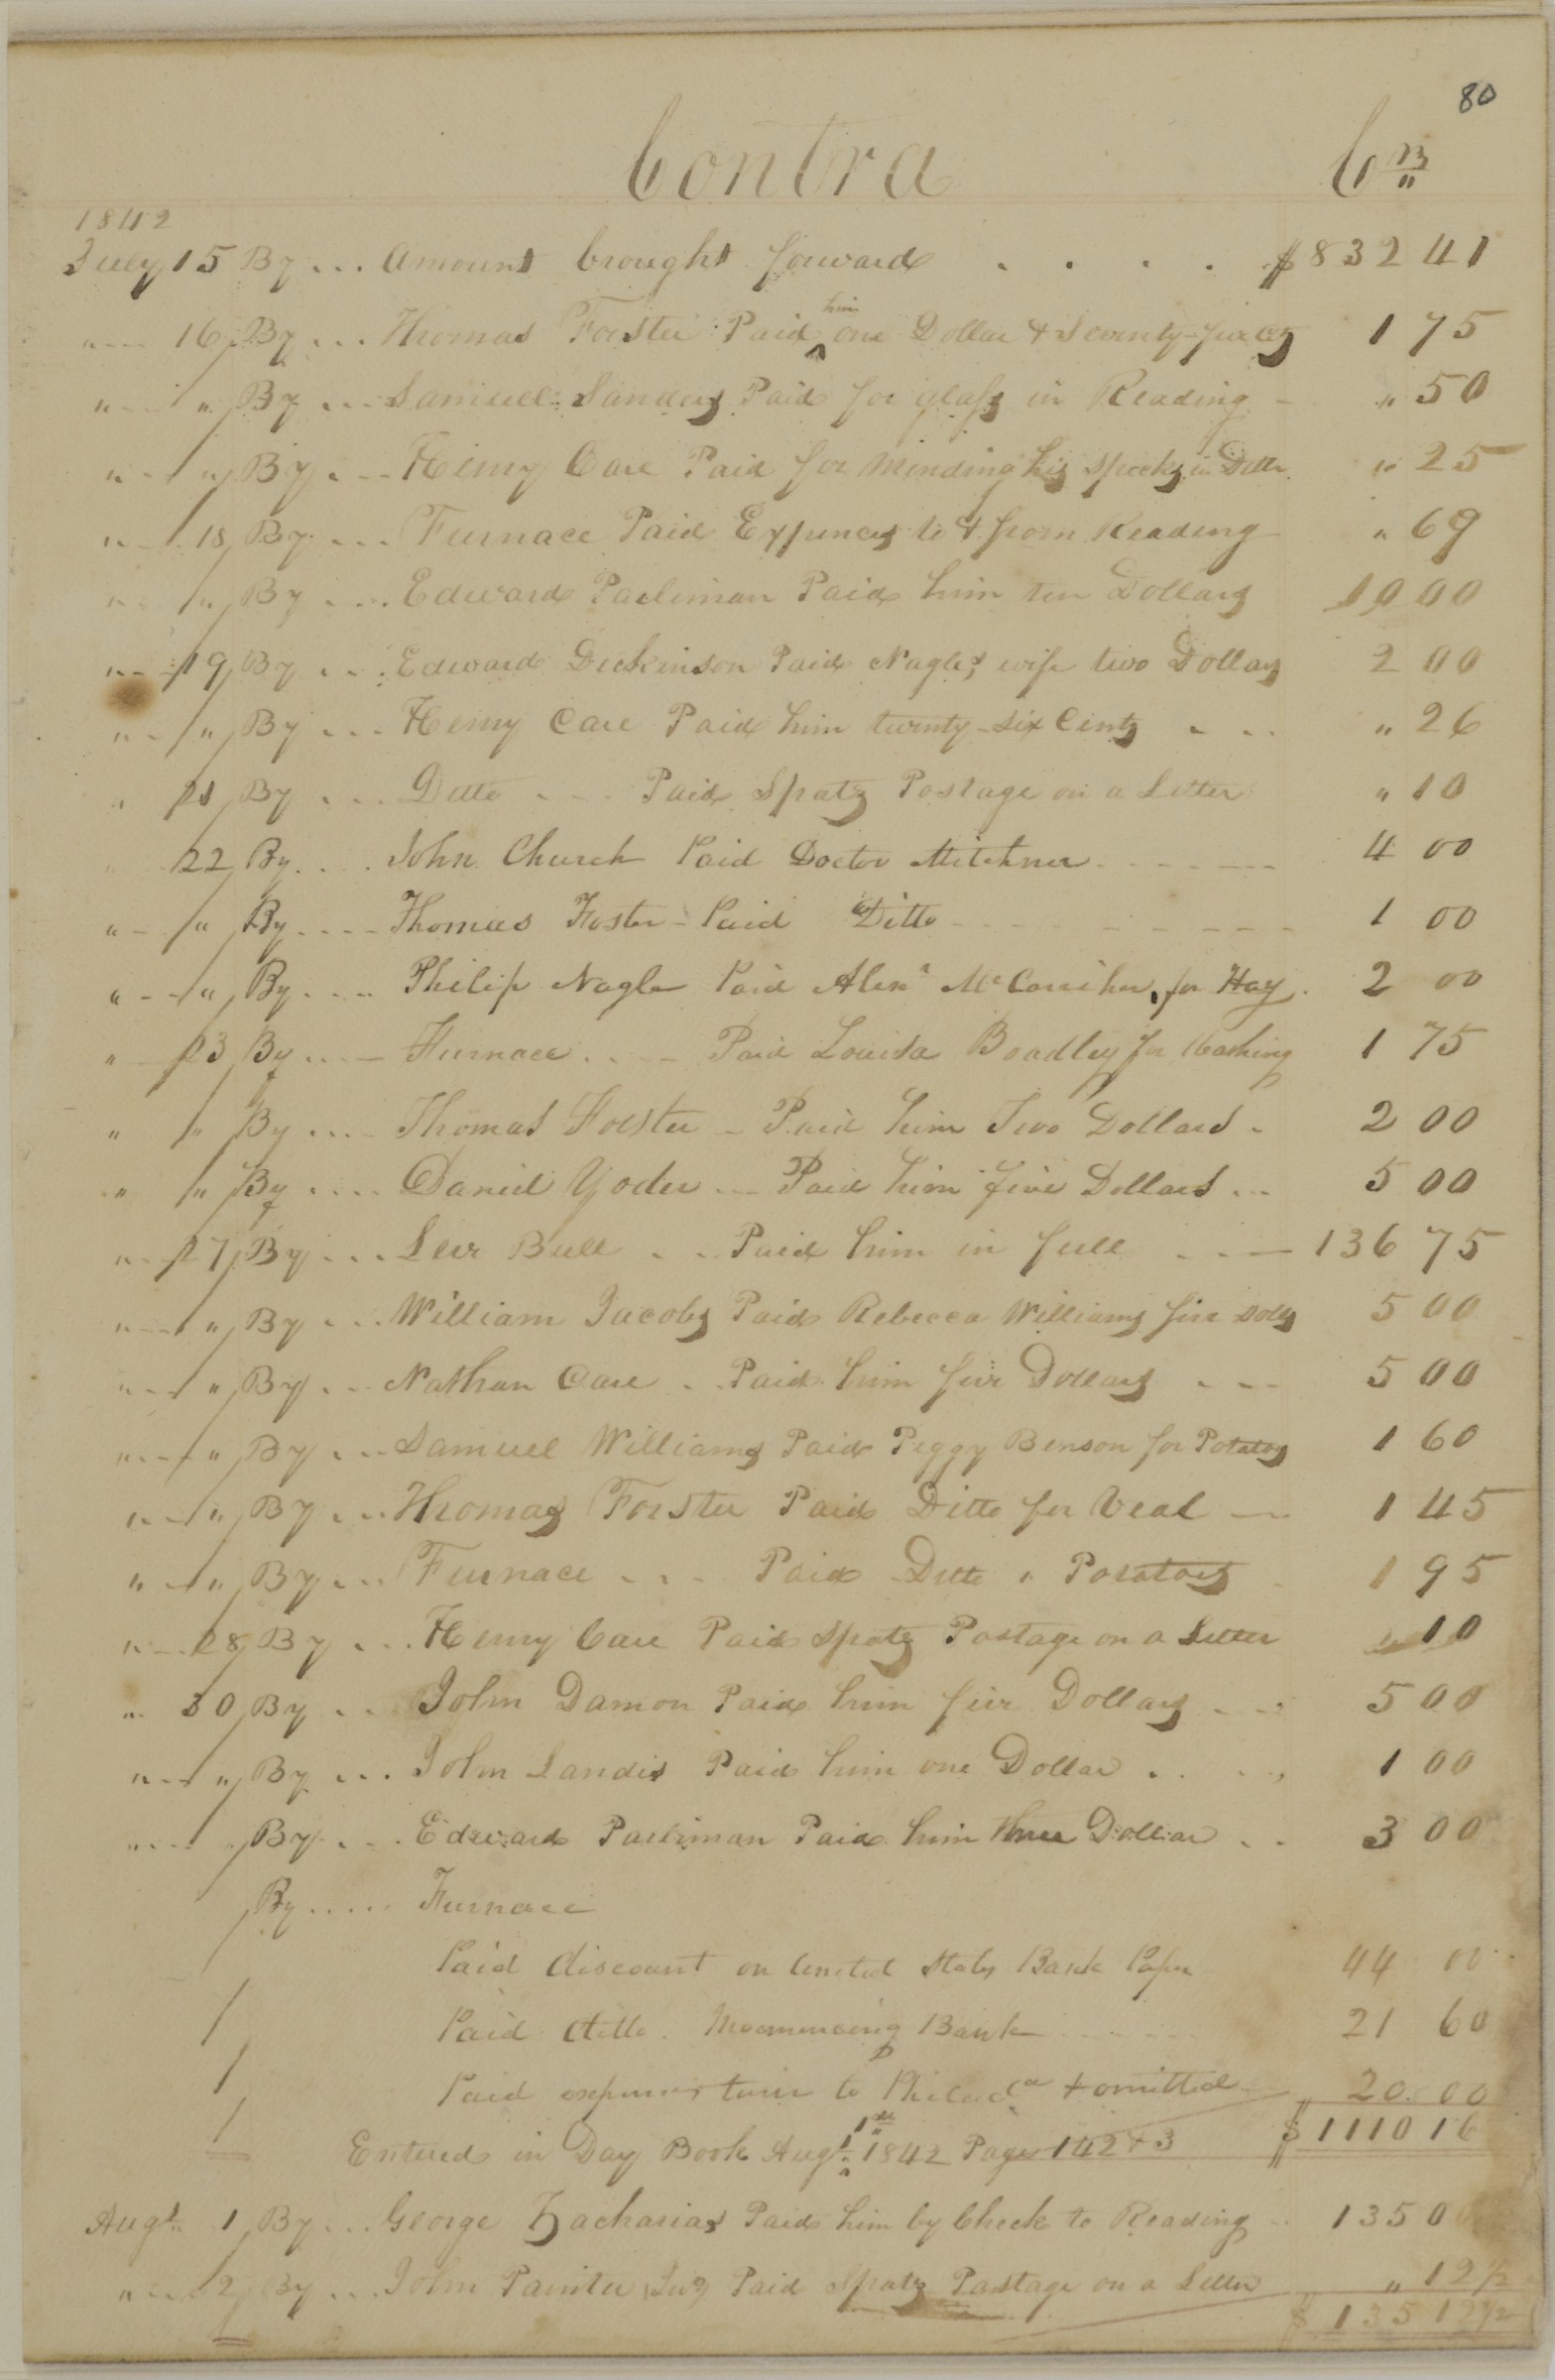 80
Contra Cr
1842
July 15 By ... Amount brought forward . . . . $832 41
"--- 16 By ... Thomas Forster Paid him one Dollar & Seventy-five Cts 1 75
"--- " By ... Samuel Sanders Paid for glass in Reading - " 50
"--- " By ... Henry Care Paid for Minding his Specks in Ditto " 25
"-- 18 By ... Furnace Paid Expences to & from Reading " 69
"-- " By ... Edward Parliman Paid him ten Dollars 10 00
"-- 19 By ... Edward Dickinson Paid Nagle's wife two Dollars 2 00
"-- " By ... Henry Care Paid him twenty-six Cents - -- " 26
" 21 By ... Ditto - -- Paid Spatz Postage on a Letter " 10
22 By .... John Church Paid Doctor Mitchner 4 00
"-- " By .... Thomas Foster - Paid Ditto 1 00
"-- " By .... Philip Nagle Paid Alexr for Hay. 2 00
" 23 By .... Furnace .... Paid Louisa Boadley for Washing 1 75
" " By .... Thomas Forster - Paid him Two Dollars - 2 00
" " By .... Daniel Yoder -- Paid him five Dollars ... 5 00
"-- 27 By ... Levi Bull . . . Paid him in full - . - 136 75
"-- " By ... William Jacobs Paid Rebecca Williams five Dolls 5 00
"-- " By ... Nathan Care . . Paid him five Dollars - -- 5 00
"-- " By ... Samuel Williams Paid Peggy Benson for Potatoes 1 60
"-- " By ... Thomas Forster Paid Ditto for Veal -- 1 45
"-- " By ... Furnace . . . Paid Ditto " Potatoes 1 95
"-- 28 By ... Henry Care Paid Spatz Postage on a Letter " 10
" 30 By .. John Damon Paid him five Dollars - -- 5 00
"-- " By ... John Landis Paid him one Dollar . . . . 1 00
"--- " By ... Edward Parliman Paid him three Dollar . . 3 00
By ..... Furnace
Paid discount on United States Bank Paper 44 00
Paid ditto. Bank 21 60
Paid expenses to Philada & omitted 20.00
Entered in Day Book Augt 1st 1842 Page 142 & 3 $1110 16
Augt 1 By ... George Zacharias Paid him by Check to Reading -- 135 00
"-- 2 By ... John Painter Paid Spatz Postage on a Letter " 12 1/2
$ 135 12 1/2